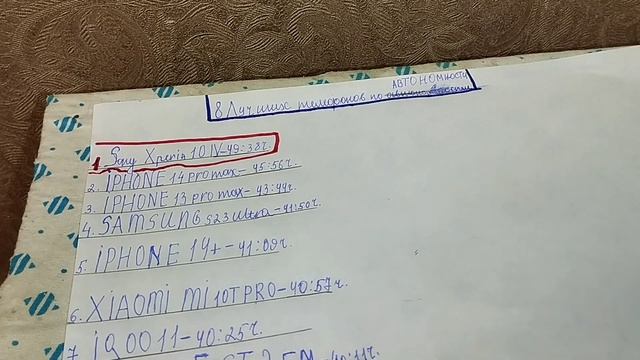 АВТОНОМности
8 Лучших телефонов по
1. Sony Xperia 10 IV-49:38ч.
2. IPHONE 14 pro max- 45:56ч.
3. IPHONE 13 pro max- 43:44ч.
4. SAMSUNG S23 Ultra-41:50ч.
5. iPHONE 14+-41:09ч.
6. XIAOMI Mi 10T PRO-40:57ч.
7. iQOO 11-40:25ч.